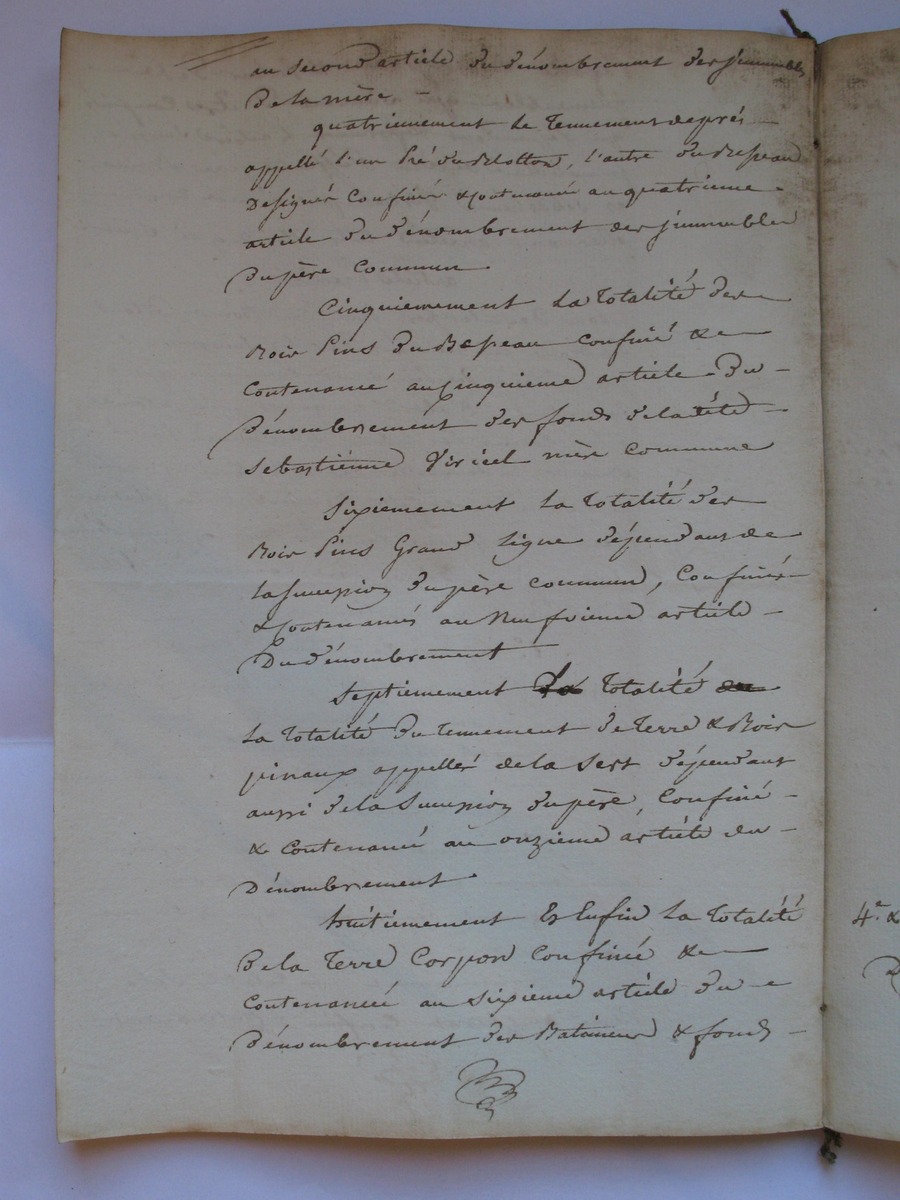 au second article du dénombrement des jmmeubles
de la mère
quatriennement le tennement de prés
appellé l'un Pré du Molton, l'autre du Respeau
designés confinés & contenancé au quatrieme
article du dénombrement des jmmeubles
du père commun
Cinquiemement la totalité des
Bois Pins du Bespeau confiné &
contenancé au cinquieme article du
dénombrement des fonds de la dite
Sebastiénne Viricel mère commune
Sixiemement la totalité des
Bois Pins Grand Ligne dépendant de
la sucession du père commun, confinés
& contenancés au neufvieme article
Du dénombrement
Septiemement totalité
la totalité du tennement de terre & Bois
pinaux appellés de la Sert dépendant
aussi de la Sucession du père, confiné
& contenancé au onzieme article du
Dénombrement
huitiemement Et Enfin la totalité
De la terre Corpon confinée &
contenancée au sixieme article du
Dénombrement des Batimens & fonds
4.e &